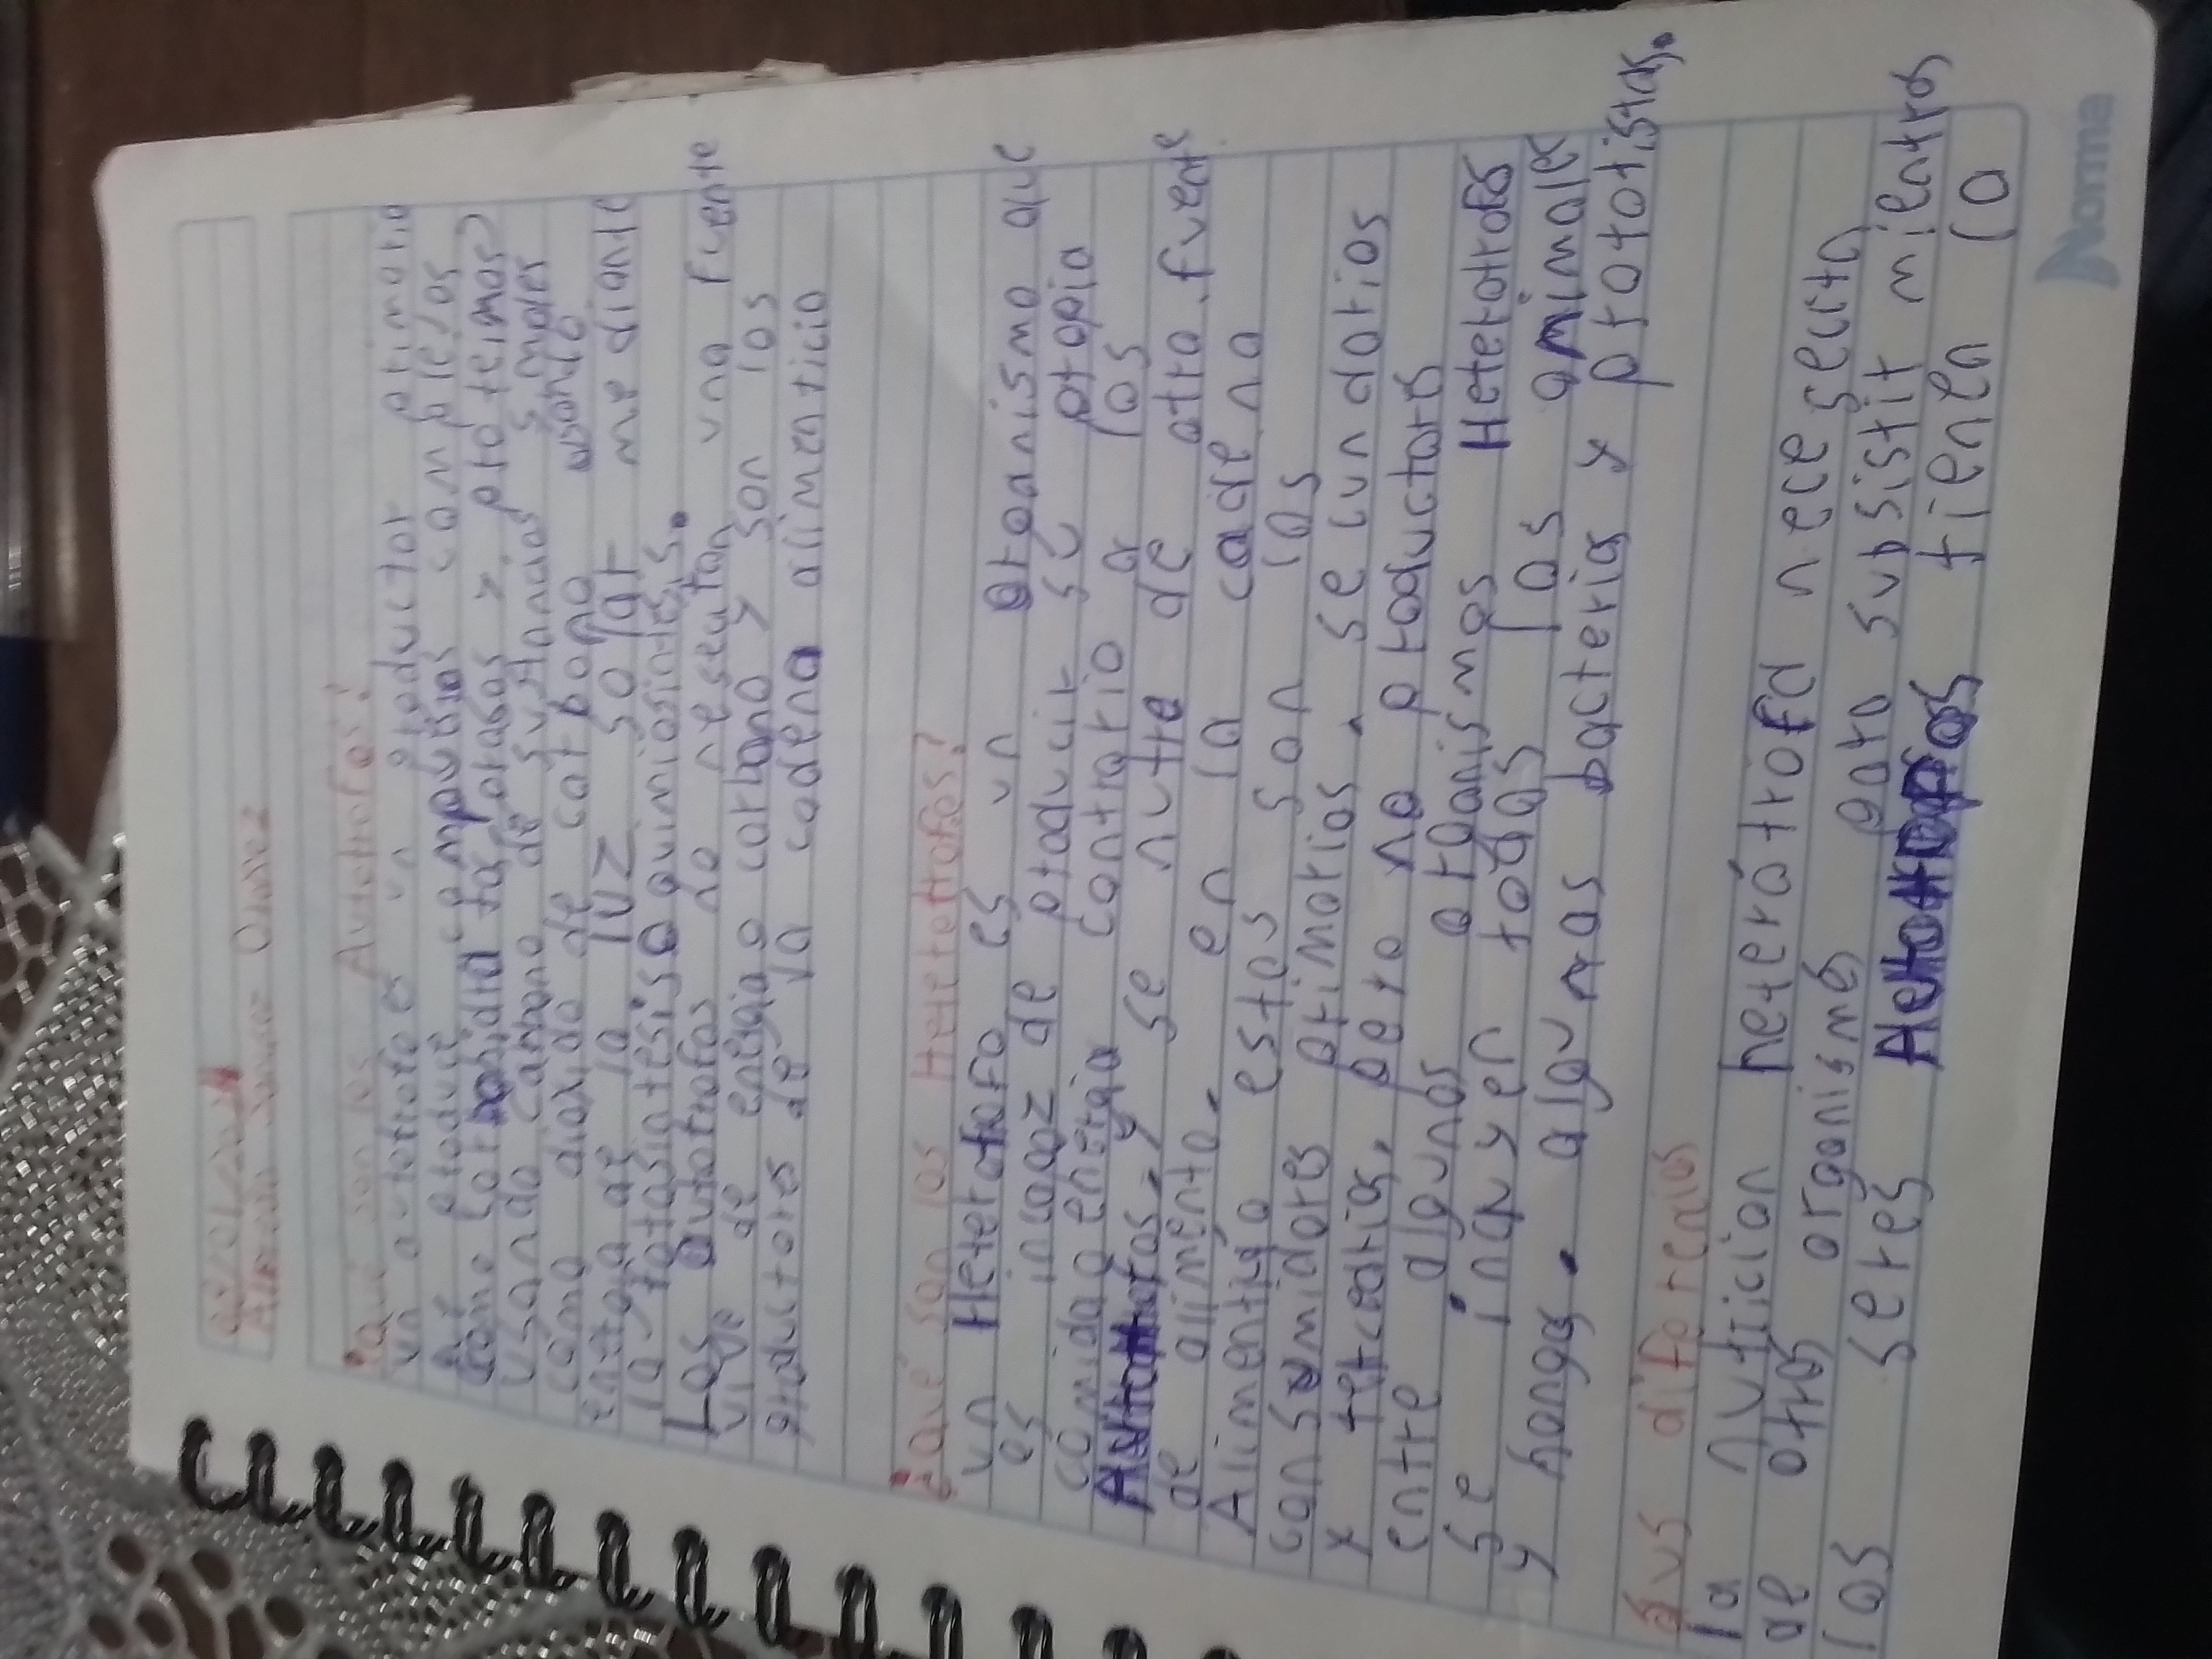 ¿Qué son los Autotrofos?
un autotrofo es un productor primario
que produce compuestos complejos
como carbohidratos, grasas y proteinas)
usando carbono de sustancias simples
como dioxido de carbono usando
energa de la luz solar mediante
la fotosintesis o quimiosintesis.
Los autotrofos no nesesitan una fuente
viva de energia o carbono y son los
productores de la cadena alimenticia
¿Qué son los Heterotrofos?
un Heterotrofo es un organismo que
es incapaz de producir su propia
comida o energia contrario a los
Autotrofos, y se nutre de otra fuente
de alimento. en la cadena
Alimenticia estos son los
consumidores primarios, secundarios
y terceario, pero no productores
entre algunos organismos Heterotrofos
se incluyen todos los animales
y hongos, algunas bacterias y protistas.
Sus diferenias
la nuticion heterótrofa nece secita
de otros organismo para subsistir mientras
los seres tienen lo
Norma